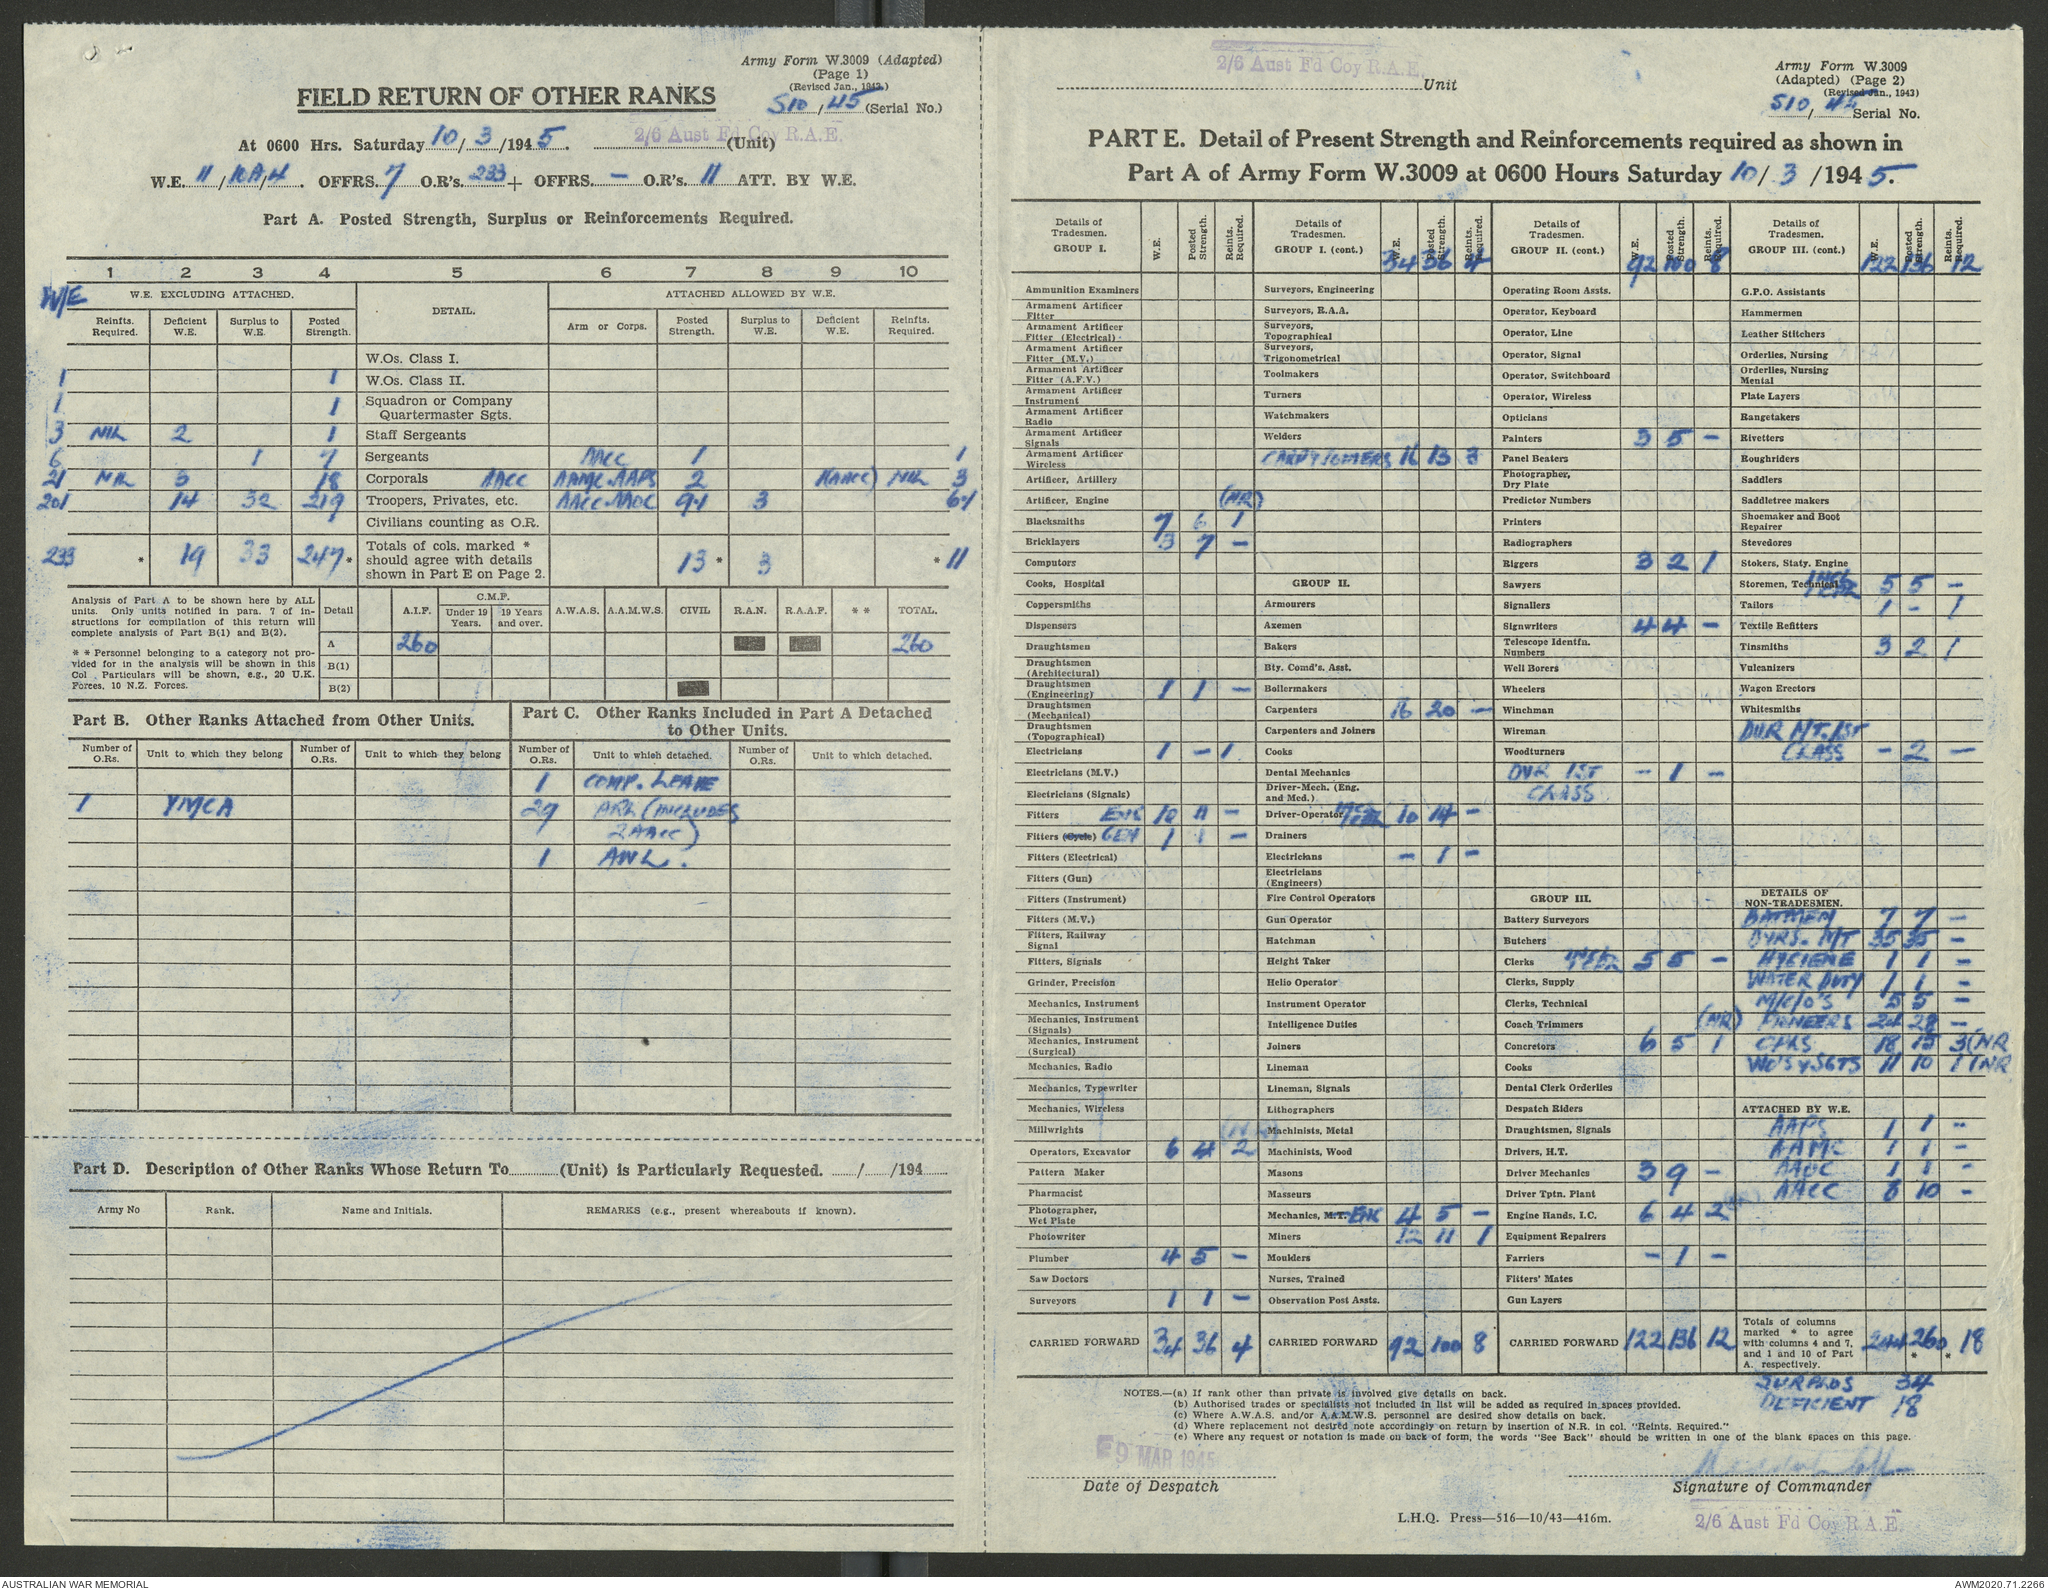 Army Form W.3009 (Adapted)
(Page 1)
(Revised Jan., 1943.)
FIELD RETURN OF OTHER RANKS
510/45 (Serial No.)
At 0600 Hrs. Saturday 10/3/1945. 2/6 Aust Fd Coy R.A.E. (Unit)
W.E. 11/10A/4. OFFRS. 7 O.R's. 233 + OFFRS. — O.R's. 11 ATT. BY W.E.
Part A. Posted Strength, Surplus or Reinforcements Required.
1 2 3 4 5 6 7 8 9 10
W/E W.E. EXCLUDING ATTACHED. DETAIL. ATTACHED ALLOWED BY W.E.
Reinfts. Required. Deficient W.E. Surplus to W.E. Posted Strength. Arm or Corps. Posted Strength. Surplus to W.E. Deficient W.E. Reinfts. Required.
W.Os. Class I.
1 1 W.Os. Class II.
1 1 Squadron or Company Quartermaster Sgts.
3 NIL 2 1 Staff Sergeants
6 1 7 Sergeants AACC 1 1
21 NIL 3 18 Corporals AACC AAMC-AAPS 2 (AACC) NIL 3
201 14 32 219 Troopers, Privates, etc. AACC-AAOC 9+1 3 6+1
Civilians counting as O.R.
233 * 19 33 247* Totals of cols. marked * should agree with details shown in Part E on Page 2. 13* 3 *11
Analysis of Part A to be shown here by ALL units. Only units notified in para. 7 of instructions for compilation of this return will complete analysis of Part B(1) and B(2).
* * Personnel belonging to a category not provided for in the analysis will be shown in this Col. Particulars will be shown, e.g., 20 U.K. Forces, 10 N.Z. Forces.
Detail A.I.F. C.M.F. Under 19 Years. 19 Years and over. A.W.A.S. A.A.M.W.S. CIVIL R.A.N. R.A.A.F. * * TOTAL.
A 260 260
B(1)
B(2)
Part B. Other Ranks Attached from Other Units.
Part C. Other Ranks Included in Part A Detached to Other Units.
Number of O.Rs. Unit to which they belong Number of O.Rs. Unit to which they belong Number of O.Rs. Unit to which detached. Number of O.Rs. Unit to which detached.
1 COMP. LEAVE
1 YMCA 29 ARL (INCLUDES
2 AACC)
1 AWL.
Part D. Description of Other Ranks Whose Return To (Unit) is Particularly Requested. / /194
Army No Rank. Name and Initials. REMARKS (e.g., present whereabouts if known).
2/6 Aust Fd Coy R.A.E. Unit
Army Form W.3009
(Adapted) (Page 2)
(Revised Jan., 1943)
510/45 Serial No.
PART E. Detail of Present Strength and Reinforcements required as shown in
Part A of Army Form W.3009 at 0600 Hours Saturday 10/3/1945.
Details of Tradesmen. GROUP I. W.E. Posted Strength. Reints. Required.
Ammunition Examiners
Armament Artificer Fitter
Armament Artificer Fitter (Electrical)
Armament Artificer Fitter (M.V.)
Armament Artificer Fitter (A.F.V.)
Armament Artificer Instrument
Armament Artificer Radio
Armament Artificer Signals
Armament Artificer Wireless
Artificer, Artillery
Artificer, Engine (NR)
Blacksmiths 7 6 1
Bricklayers 3 7 —
Computors
Cooks, Hospital
Coppersmiths
Dispensers
Draughtsmen
Draughtsmen (Architectural)
Draughtsmen (Engineering) 1 1 —
Draughtsmen (Mechanical)
Draughtsmen (Topographical)
Electricians 1 — 1
Electricians (M.V.)
Electricians (Signals)
Fitters ENG 10 11 —
Fitters (Cycle) GEN 1 1 —
Fitters (Electrical)
Fitters (Gun)
Fitters (Instrument)
Fitters (M.V.)
Fitters, Railway Signal
Fitters, Signals
Grinder, Precision
Mechanics, Instrument
Mechanics, Instrument (Signals)
Mechanics, Instrument (Surgical)
Mechanics, Radio
Mechanics, Typewriter
Mechanics, Wireless
Millwrights
Operators, Excavator 6 4 2
Pattern Maker
Pharmacist
Photographer, Wet Plate
Photowriter
Plumber 4 5 —
Saw Doctors
Surveyors 1 1 —
CARRIED FORWARD 34 36 4
Details of Tradesmen. GROUP I. (cont.) W.E. Posted Strength. Reints. Required. 34 36 4
Surveyors, Engineering
Surveyors, R.A.A.
Surveyors, Topographical
Surveyors, Trigonometrical
Toolmakers
Turners
Watchmakers
Welders
CARPY/JOINERS 16 13 3
GROUP II.
Armourers
Axemen
Bakers
Bty. Comd's. Asst.
Boilermakers
Carpenters 16 20 —
Carpenters and Joiners
Cooks
Dental Mechanics
Driver-Mech. (Eng. and Med.)
Driver-Operator 10 14 —
Drainers
Electricians — 1 —
Electricians (Engineers)
Fire Control Operators
Gun Operator
Hatchman
Height Taker
Helio Operator
Instrument Operator
Intelligence Duties
Joiners
Lineman
Lineman, Signals
Lithographers
Machinists, Metal
Machinists, Wood
Masons
Masseurs
Mechanics, M.T. ENG 4 5 —
Miners 12 11 1
Moulders
Nurses, Trained
Observation Post Assts.
CARRIED FORWARD 92 100 8
Details of Tradesmen. GROUP II. (cont.) W.E. Posted Strength. Reints. Required. 92 100 8
Operating Room Assts.
Operator, Keyboard
Operator, Line
Operator, Signal
Operator, Switchboard
Operator, Wireless
Opticians
Painters 3 5 —
Panel Beaters
Photographer, Dry Plate
Predictor Numbers
Printers
Radiographers
Riggers 3 2 1
Sawyers
Signallers
Signwriters 4 4 —
Telescope Identfn. Numbers
Well Borers
Wheelers
Winchman
Wireman
Woodturners
DVR 1ST CLASS — 1 —
GROUP III.
Battery Surveyors
Butchers
Clerks 5 5 —
Clerks, Supply
Clerks, Technical
Coach Trimmers (NR)
Concretors 6 5 1
Cooks
Dental Clerk Orderlies
Despatch Riders
Draughtsmen, Signals
Drivers, H.T.
Driver Mechanics 3 9 —
Driver Tptn. Plant
Engine Hands, I.C. 6 4 2
Equipment Repairers
Farriers — 1 —
Fitters' Mates
Gun Layers
CARRIED FORWARD 122 136 12
Details of Tradesmen. GROUP III. (cont.) W.E. Posted Strength. Reints. Required. 122 136 12
G.P.O. Assistants
Hammermen
Leather Stitchers
Orderlies, Nursing
Orderlies, Nursing Mental
Plate Layers
Rangetakers
Rivetters
Roughriders
Saddlers
Saddletree makers
Shoemaker and Boot Repairer
Stevedores
Stokers, Staty. Engine
Storemen, Technical 5 5 —
Tailors 1 — 1
Textile Refitters
Tinsmiths 3 2 1
Vulcanizers
Wagon Erectors
Whitesmiths
DVR MT. 1ST
CLASS — 2 —
DETAILS OF NON-TRADESMEN.
BATMEN 7 7 —
DVRS. MT 35 35 —
HYGIENE 1 1 —
WATER DUTY 1 1 —
5 5 —
PIONEERS 24 28 —
CPLS 18 15 3 (NR
WO'S & SGTS 11 10 1 (NR
ATTACHED BY W.E.
AAPS 1 1 —
AAMC 1 1 —
AAOC 1 1 —
AACC 8 10 —
Totals of columns marked * to agree with columns 4 and 7, and 1 and 10 of Part A. respectively. 244 260* *18
SURPLUS 34
DEFICIENT 18
NOTES.—(a) If rank other than private is involved give details on back.
(b) Authorised trades or specialists not included in list will be added as required in spaces provided.
(c) Where A.W.A.S. and/or A.A.M.W.S. personnel are desired show details on back.
(d) Where replacement not desired note accordingly on return by insertion of N.R. in col. "Reints. Required."
(e) Where any request or notation is made on back of form, the words "See Back" should be written in one of the blank spaces on this page.
9 MAR 1945
Date of Despatch
Signature of Commander
L.H.Q. Press—516—10/43—416m.
2/6 Aust Fd Coy R.A.E.
AUSTRALIAN WAR MEMORIAL
AWM2020.71.2266